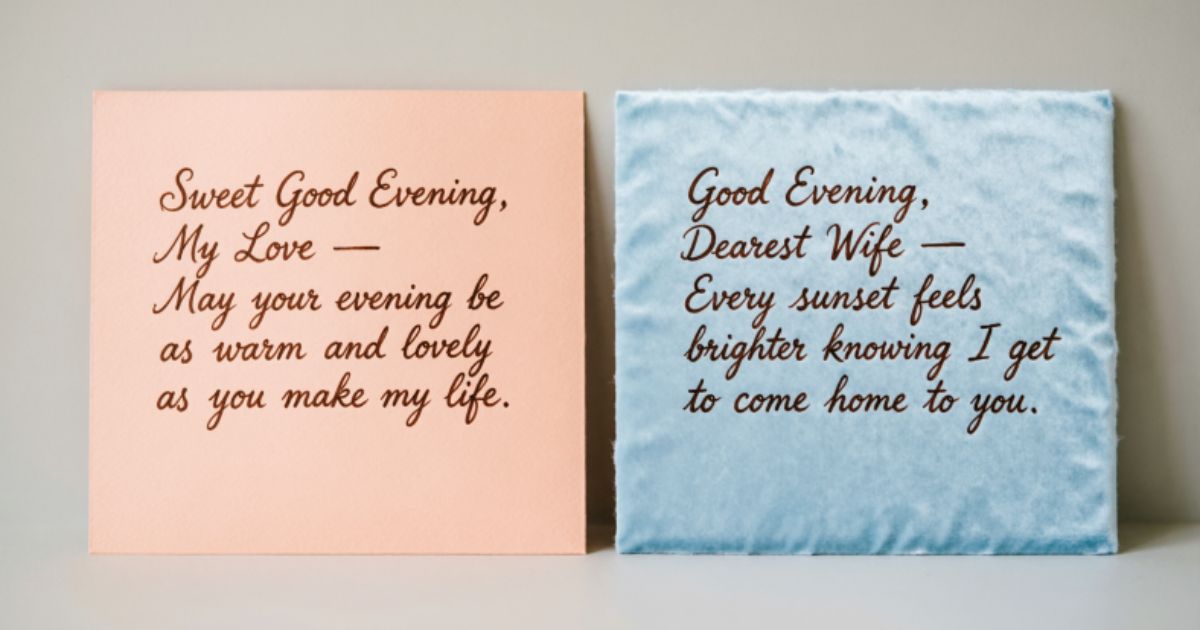 Sweet Good Evening,
My Love —
May your evening be
as warm and lovely
as you make my life.
Good Evening,
Dearest Wife —
Every sunset feels
brighter knowing I get
to come home to you.